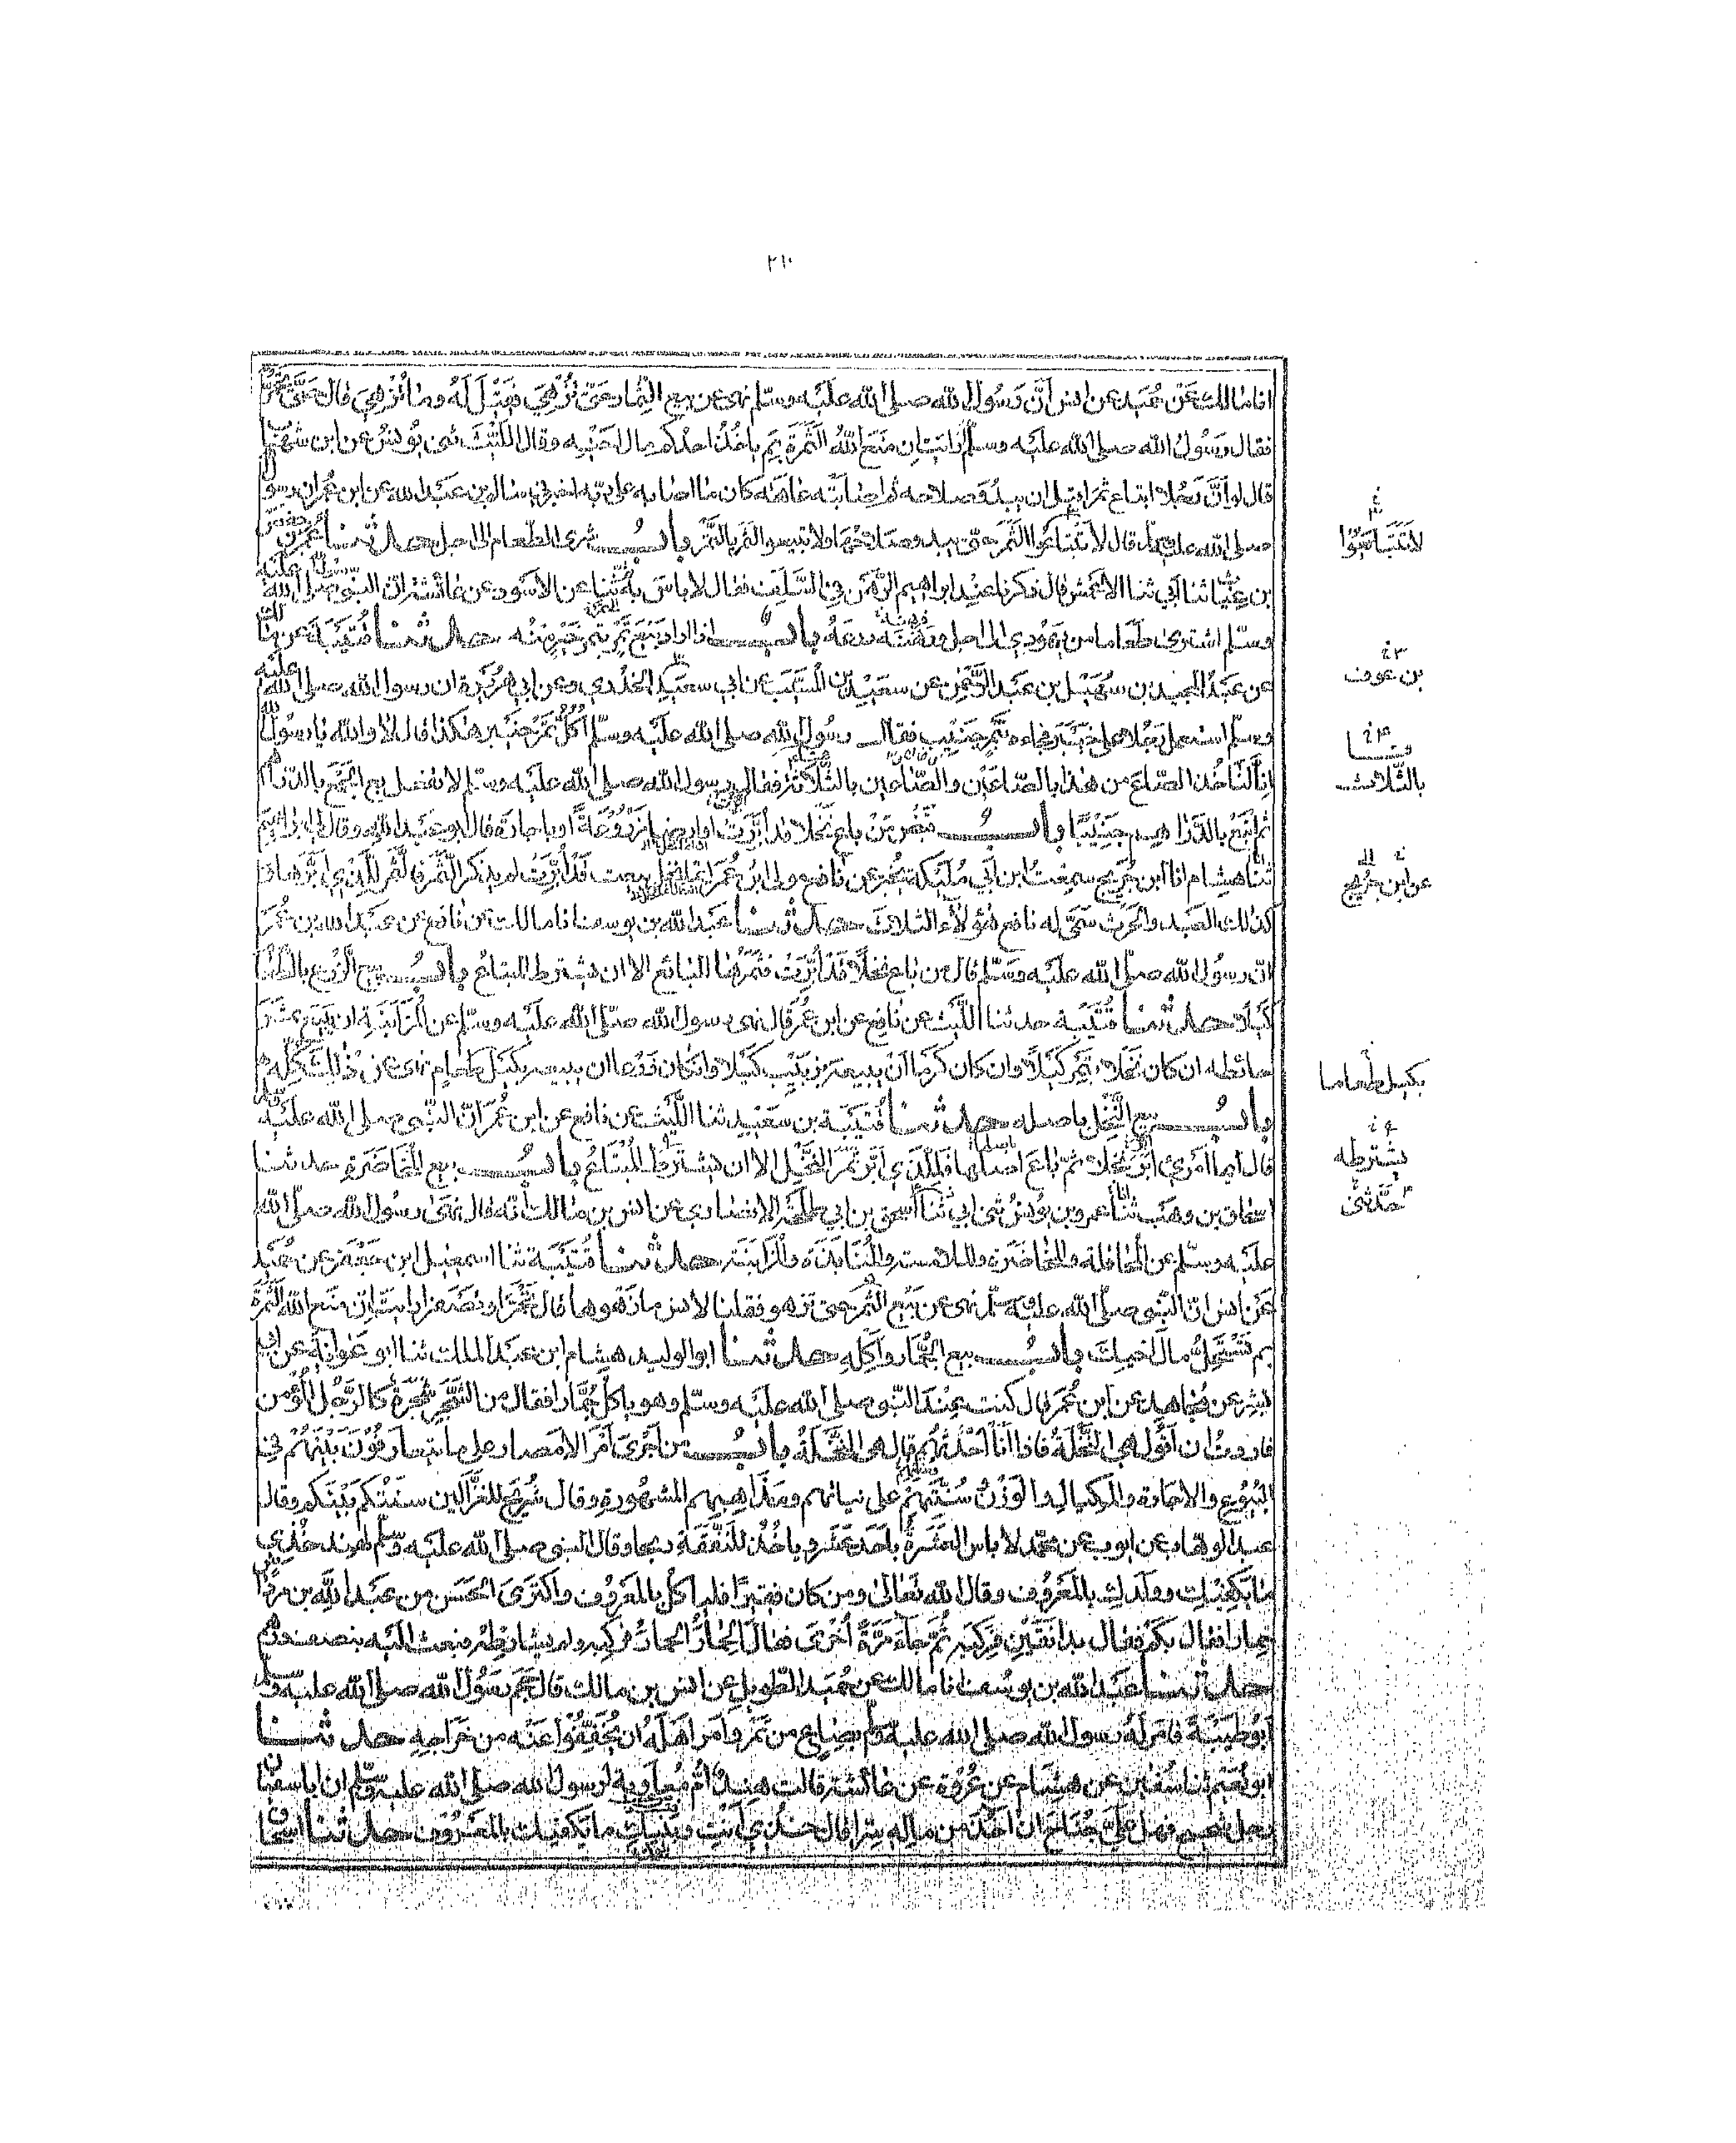 ٢١٠
انا مالك عن حميد عن انس ان رسول الله صلى الله عليه وسلم نهى عن بيع الثمار حتى تزهي فقيل له وما تزهي قال حتى تحمر
فقال رسول الله صلى الله عليه وسلم ارايت ان منع الله الثمرة بم ياخذ احدكم مال اخيه وقال الليث ثنى يونس عن ابن شهاب
قال لو ان رجلا ابتاع ثمرا قبل ان يبدو صلاحه ثم اصابته عاهة كان ما اصابه على ربه اخبرني سالم بن عبد الله عن ابن عمر ان رسول
صلى الله عليه وسلم قال لا تتبايعوا الثمر حتى يبدو صلاحها ولا تبيعوا الثمر بالتمر باب شرى الطعام الى اجل حدثنا عمر بن حفص
بن غياث ثنا ابي ثنا الاعمش قال ذكرنا عند ابراهيم الرهن في السلف فقال لا باس به ثنا عن الاسود عن عائشة ان النبي صلى الله عليه
وسلم اشترى طعاما من يهودي الى اجل ورهنه درعه باب اذا اراد بيع تمر بتمر خير منه حدثنا قتيبة عن مالك
عن عبد المجيد بن سهيل بن عبد الرحمن عن سعيد بن المسيب عن ابي سعيد الخدري وعن ابي هريرة ان رسول الله صلى الله عليه
وسلم استعمل رجلا على خيبر فجاءه بتمر جنيب فقال رسول الله صلى الله عليه وسلم أكل تمر خيبر هكذا قال لا والله يا رسول الله
انا لناخذ الصاع من هذا بالصاعين والصاعين بالثلاثة فقال رسول الله صلى الله عليه وسلم لا تفعل بع الجمع بالدراهم
ثم ابتع بالدراهم جنيبا باب من باع نخلا قد أبرت او ارضا مزروعة او باجارة قال ابو عبد الله وقال لي ابراهيم
ثنا هشام انا ابن جريج سمعت ابن ابي مليكة يخبر عن نافع مولى ابن عمر ايما نخل بيعت قد أبرت لم يذكر الثمر فالثمر للذي ابرها
كذلك العبد والحرث سمى له نافع هؤلاء الثلاث حدثنا عبد الله بن يوسف انا مالك عن نافع عن عبد الله بن عمر
ان رسول الله صلى الله عليه وسلم قال من باع نخلا قد أبرت فثمرها للبائع الا ان يشترط المبتاع باب بيع الزرع بالطعام
كيلا حدثنا قتيبة حدثنا الليث عن نافع عن ابن عمر قال نهى رسول الله صلى الله عليه وسلم عن المزابنة ان يبيع ثمر
حائطه ان كان نخلا بتمر كيلا وان كان كرما ان يبيعه بزبيب كيلا وان كان زرعا ان يبيعه بكيل طعام نهى عن ذلك كله
باب بيع النخل باصله حدثنا قتيبة بن سعيد ثنا الليث عن نافع عن ابن عمر ان النبي صلى الله عليه وسلم
قال ايما امرئ ابر نخلا ثم باع اصلها فللذي ابر ثمر النخل الا ان يشترط المبتاع باب بيع المخاضرة حدثنا
اسحاق بن وهب ثنا عمر بن يونس ثنى ابي ثنا اسحق بن ابي طلحة الانصاري عن انس بن مالك انه قال نهى رسول الله صلى الله
عليه وسلم عن المحاقلة والمخاضرة والملامسة والمنابذة والمزابنة حدثنا قتيبة ثنا اسمعيل ابن جعفر عن حميد
عن انس ان النبي صلى الله عليه وسلم نهى عن بيع الثمر حتى تزهو فقلنا لانس ما زهوها قال تحمر وتصفر ارايت ان منع الله الثمرة
بم تستحل مال اخيك باب بيع الجمار واكله حدثنا ابو الوليد هشام ابن عبد الملك ثنا ابو عوانة عن ابي
بشر عن مجاهد عن ابن عمر قال كنت عند النبي صلى الله عليه وسلم وهو ياكل جمارا فقال من الشجر شجرة كالرجل المؤمن
فاردت ان اقول هي النخلة فاذا انا احدثهم قال هي النخلة باب من اجرى امر الامصار على ما يتعارفون بينهم في
البيوع والاجارة والمكيال والوزن وسنتهم على نياتهم ومذاهبهم المشهورة وقال شريح للغزالين سنتكم بينكم وقال
عبد الوهاب عن ايوب عن محمد لا باس العشرة باحد عشر وياخذ للنفقة ربحا وقال النبي صلى الله عليه وسلم لهند خذي
ما يكفيك وولدك بالمعروف وقال الله تعالى ومن كان فقيرا فلياكل بالمعروف واكترى الحسن من عبد الله بن مرداس
حمارا فقال بكم فقال بدانقين فركبه ثم جاء مرة أخرى فقال الحمار الحمار فركبه ولم يشارطه فبعث اليه بنصف درهم
حدثنا عبد الله بن يوسف انا مالك عن حميد الطويل عن انس بن مالك قال حجم رسول الله صلى الله عليه وسلم
ابو طيبة فامر له رسول الله صلى الله عليه وسلم بصاع من تمر وامر اهله ان يخففوا عنه من خراجه حدثنا
ابو نعيم ثنا سفين عن هشام عن عروة عن عائشة قالت هند ام معاوية لرسول الله صلى الله عليه وسلم ان ابا سفيان
رجل شحيح فهل علي جناح ان آخذ من ماله سرا قال خذي انت وبنيك ما يكفيك بالمعروف حدثنا اسحاق
بن عوف
بالثلاث
عن ابن جريج
بكيل طعاما
يشترطه